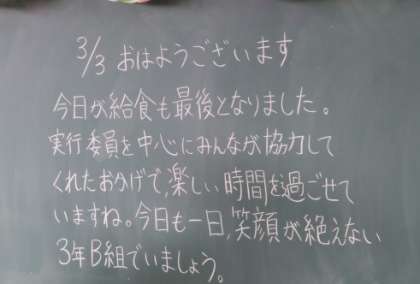 3/3 おはようございます
今日が給食も最後となりました。
実行委員を中心にみんなが協力して
くれたおかげで、楽しい時間を過ごせて
いますね。今日も一日、笑顔が絶えない
3年B組でいましょう。